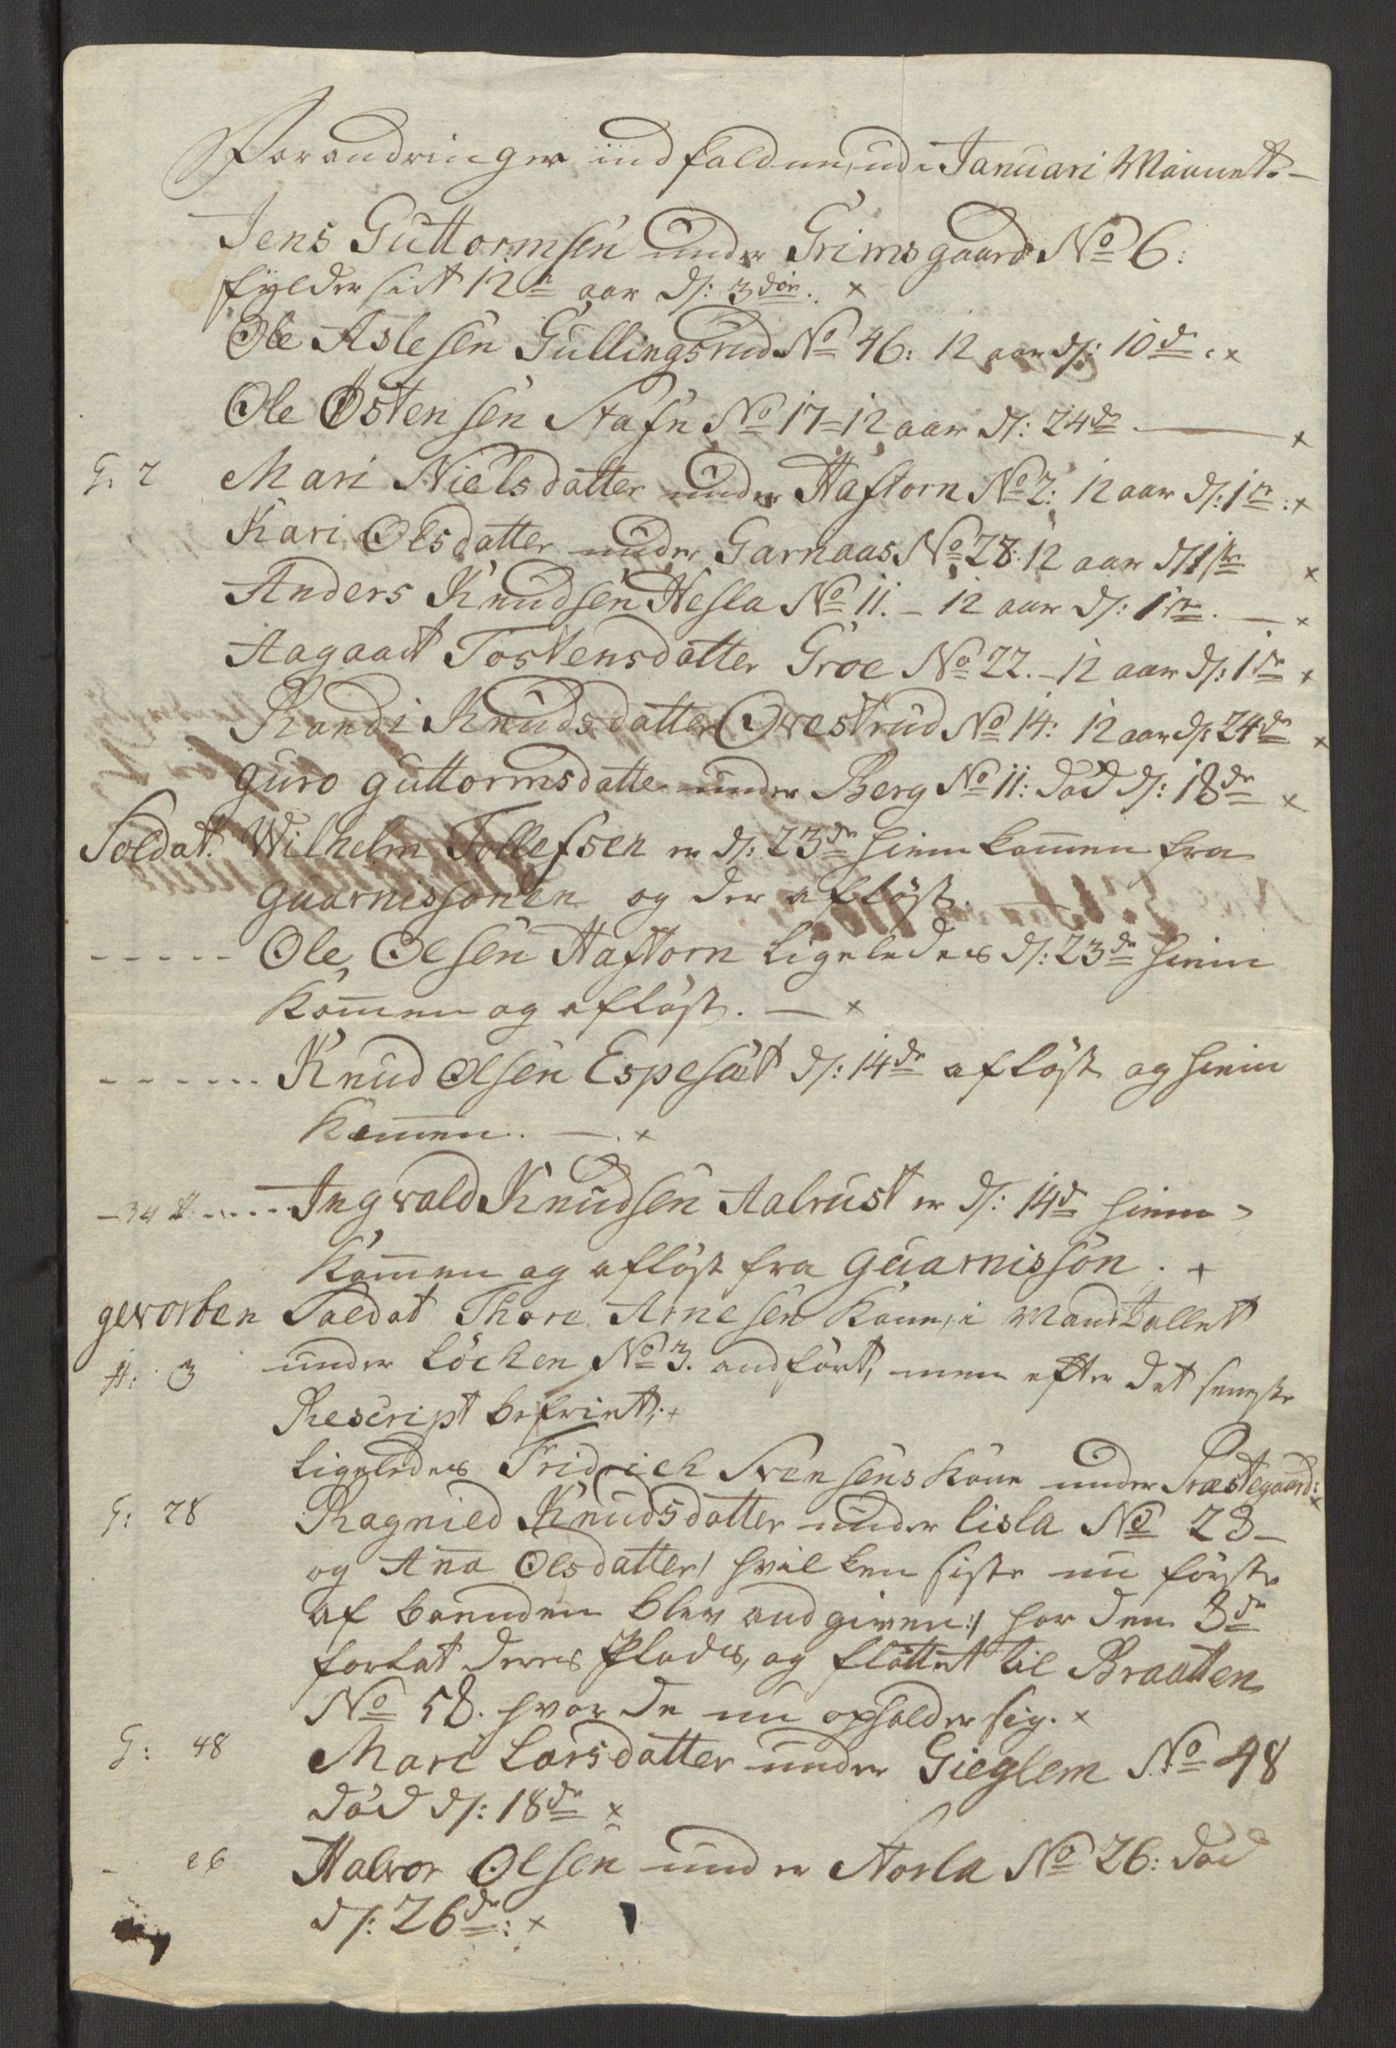 Forandringer indfaldne, udi Januari Maanet. –
Jens Guttormsen under Grimsgaard No 6:
fylder sit 12te aar d: 3die. x
Ole Aslesen Gullingsrud No 46: 12 aar d: 10de. x
Ole Østensen No 17 – 12 aar d: 24de — x
G: 2 Mari Nielsdatter under Haftorn No 2: 12 aar d: 1te: x
Kari Olsdatter under Garnaas No 28: 12 aar d: 1te x
Anders Knudsen Hesla No 11. – 12 aar d: 1te. — x
Aagaat Tostensdatter Groe No 22. – 12 aar d: 1te x
Randi Knudsdatter Ovestrud No 14: 12 aar d: 24de x
Guro Guttormsdatter under Berg No 11: død d: 18de x
Soldat: Wilhelm Tollefsen er d: 23de hiemkommen fra
Guarnissonen og der afløst.
- - - - - Ole Olsen Haftorn ligeledes d: 23de hiem
kommen og afløst. — x
- - - - - - Knud Olsen Espesæt d: 14de afløst og hiem
kommen. — x
– 34 #: - - - - Ingvald Knudsen Aalrust er d: 14de hiem-
kommen og afløst fra Guarnisson. +
gevorben Soldat Thore Arnesen Kone, i Mandtallet
#: 3 under Løcken No 3. andført, men efter det seneste
Rescript befriet. +
Ligeledes Fridrich Svensens Kone under Præstegaard: x
G: 28 Ragnied Knudsdatter under Lisla No 28 –
og Anna Olsdatter /: hvilken siste nu første
af bonden blev andgiven :/ har den 3de
forlat deres Plads, og fløttet til Braatten
No 58. hvor de nu opholder sig. x
G: 48 Mari Larsdatter under Gieglem No 48
død d: 18de x
- 26 Halvor Olsen under Norla No 26: død
d: 26de: x